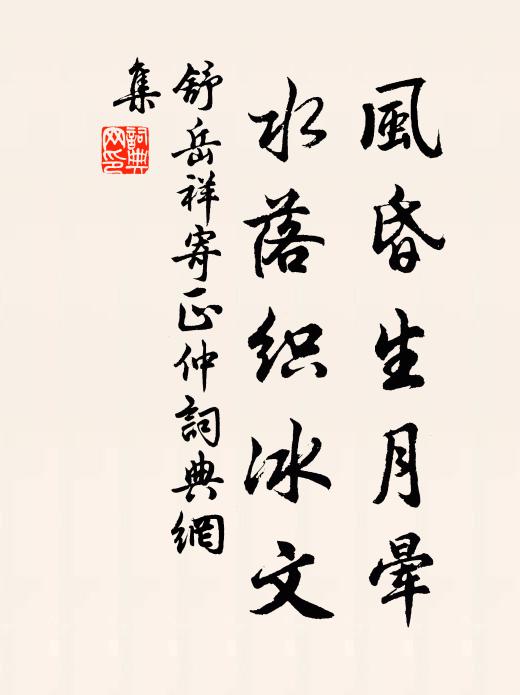 風昏生月暈
水落织冰文
舒岳祥寄正仲詞典網
集
詞典
网印